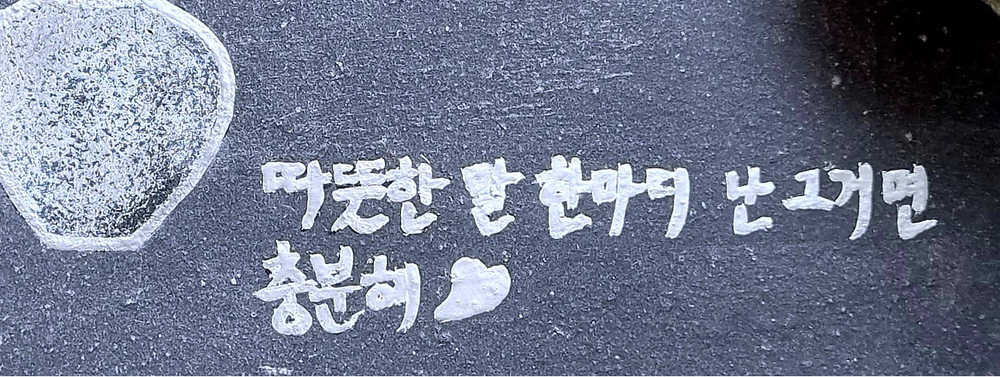 따뜻한 말 한마디 난 그거면
충분해